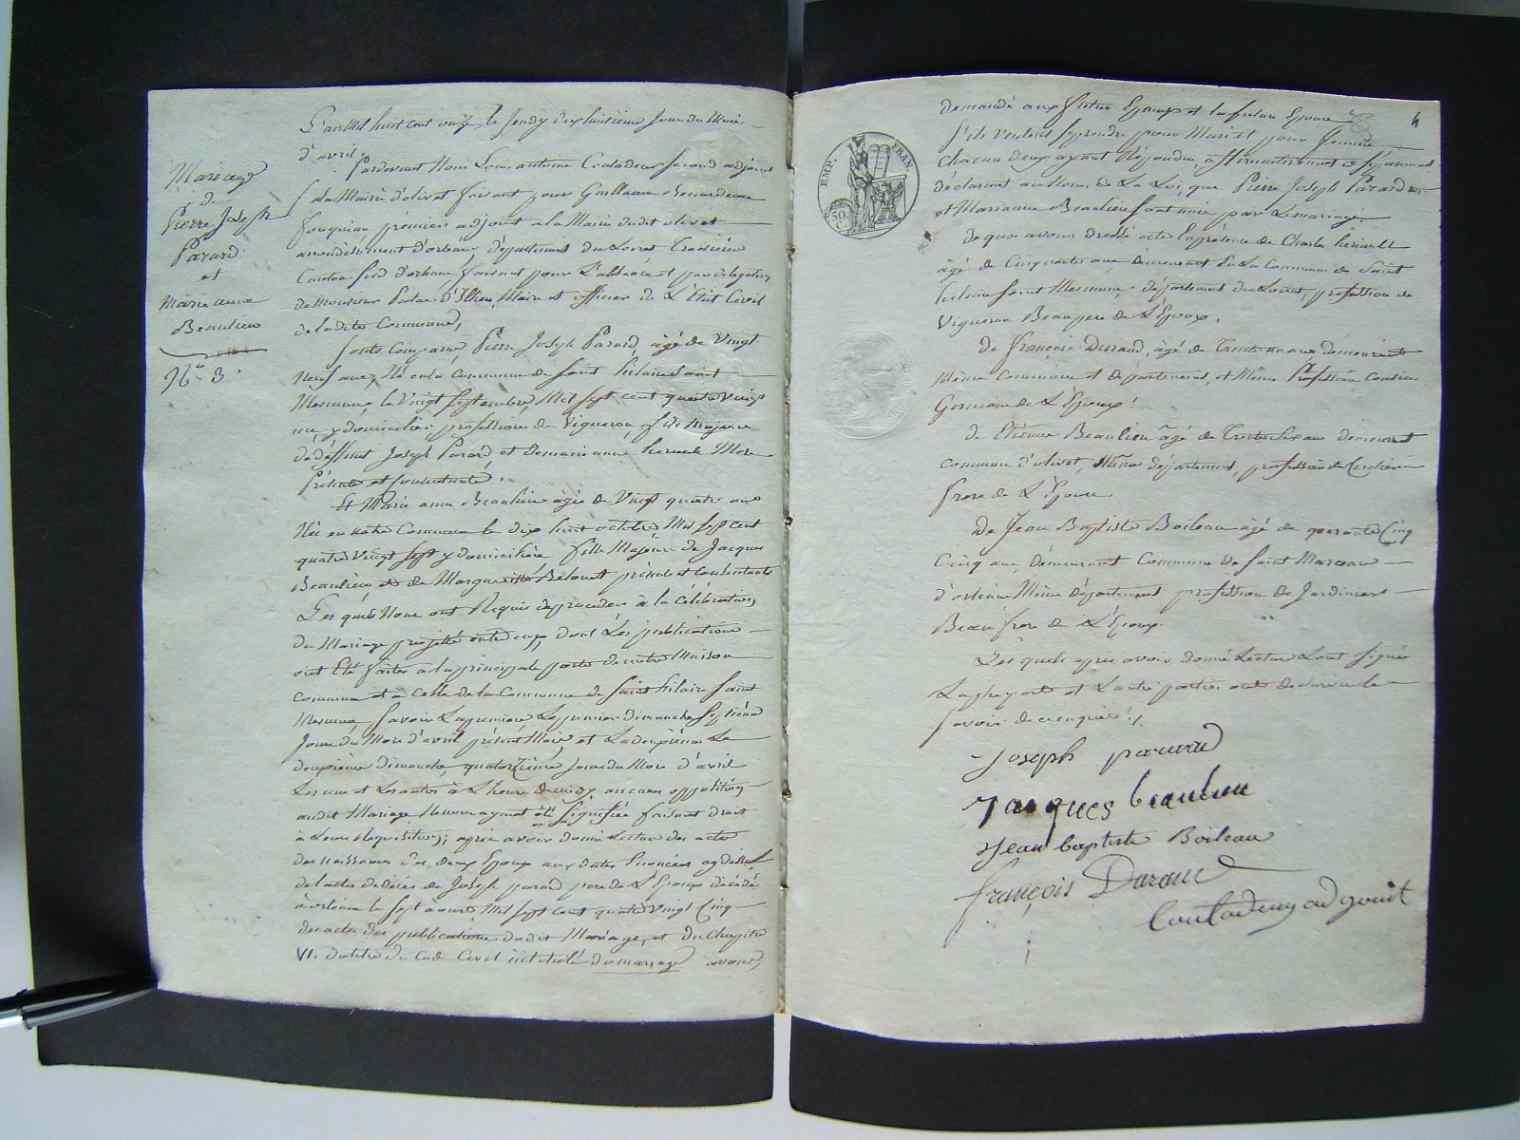 L'an mil huit cent onze, le Jeudy dix huitieme Jour du Mois
d'avril
Mariage
de
Pierre Joseph
Parard
et
Marie anne
Beaulieu
N° 3.
Pardevant Nous antoine second adjoint
a la Mairie d'olivet faisant pour Guillaume
premier adjoint a la Mairie dudit olivet
arrondissement d'orleans, departement du Loiret
Canton Sud d'orleans faisant pour L'absence et par delegation
de Monsieur Maire et officier de L'Etat Civil
de ladite Commune,
Sont Comparus, Pierre Joseph Parard, agé de Vingt
Neuf ans, Né en la Commune de Saint hilaire Saint
Mesmin, le Vingt Septembre Mil Sept cent quatre Vingt
un, y domicilié, profession de Vigneron, fils Majeur
de deffunt Joseph Parard et de marie anne herault Mere
Présente et Consentante.
Et Marie anne Beaulieu agée de Vingt quatre ans
Née en notre Commune le dix huit octobre Mil Sept cent
quatre Vingt Sept y domiciliée fille Majeure de Jacques
Beaulieu et de Marguerite présents et Consentants
Les quels Nous ont Requis de proceder à la célébration
du Mariage projetté entre eux, dont Les publications
ont Eté faites a la principale porte de notre Maison
commune et a Celle de la Commune de Saint hilaire Saint
Mesmin, Savoir La premiere Le premier dimanche Septieme
Jour du Mois d'avril présent Mois, et La deuxième Le
deuxieme dimanche, quatorzieme Jour du Mois d'avril
L'heure de midy, aucune opposition
audit Mariage Ne nous ayant été Signifiée faisant droit
à Leur Requisition; après avoir donné Lecture des actes
de Naissance des deux Epoux aux dates Enoncées
de l'acte de décès de Joseph parard pere de L'Epoux décédé
a orleans le Sept Mil Sept Cent quatre Vingt Cinq
des actes des publications dudit Mariage, et du Chapitre
VI du titre du Code Civil intitulé du mariage avons
4
demandé aux future Epoux et la future Epouse
S'ils veulent Se prendre pour Mari et pour femme
Chacun d'eux ayant Répondu, affirmativement
déclarons au Nom de La Loi, que Pierre Joseph Parard
et Marianne Beaulieu Sont unis par Le mariage.
EMP. FRAN.
50. C
de quoi avons dressé acte En présence de Charle herault
âgé de Cinquante ans demeurant En La Commune de Saint
hilaire Saint Mesmin, département du Loiret, profession de
Vigneron Beaupere de L'Epoux.
De françois Durand, âgé de Trente ans demeurant
Même Commune et departement, et Même Profession Cousin
Germain de L'Epoux.
de Etienne Beaulieu âgé de demeurant
Commune d'olivet, Même département, profession de
frere de L'Epouse
De Jean Baptiste Boileau âgé de quarante Cinq
Cinq ans, demeurant Commune de Saint Marceau
d'orleans Même département profession de Jardinier
Beaufrere de L'Epoux.
Les quels après avoir donné Lecture L'ont Signé
et L'autre parties ont declaré ne le
Savoir de ce enquis./.
Joseph parard
Jacques beaulieu
Jean baptiste Boileau
françois Durand
adjoint